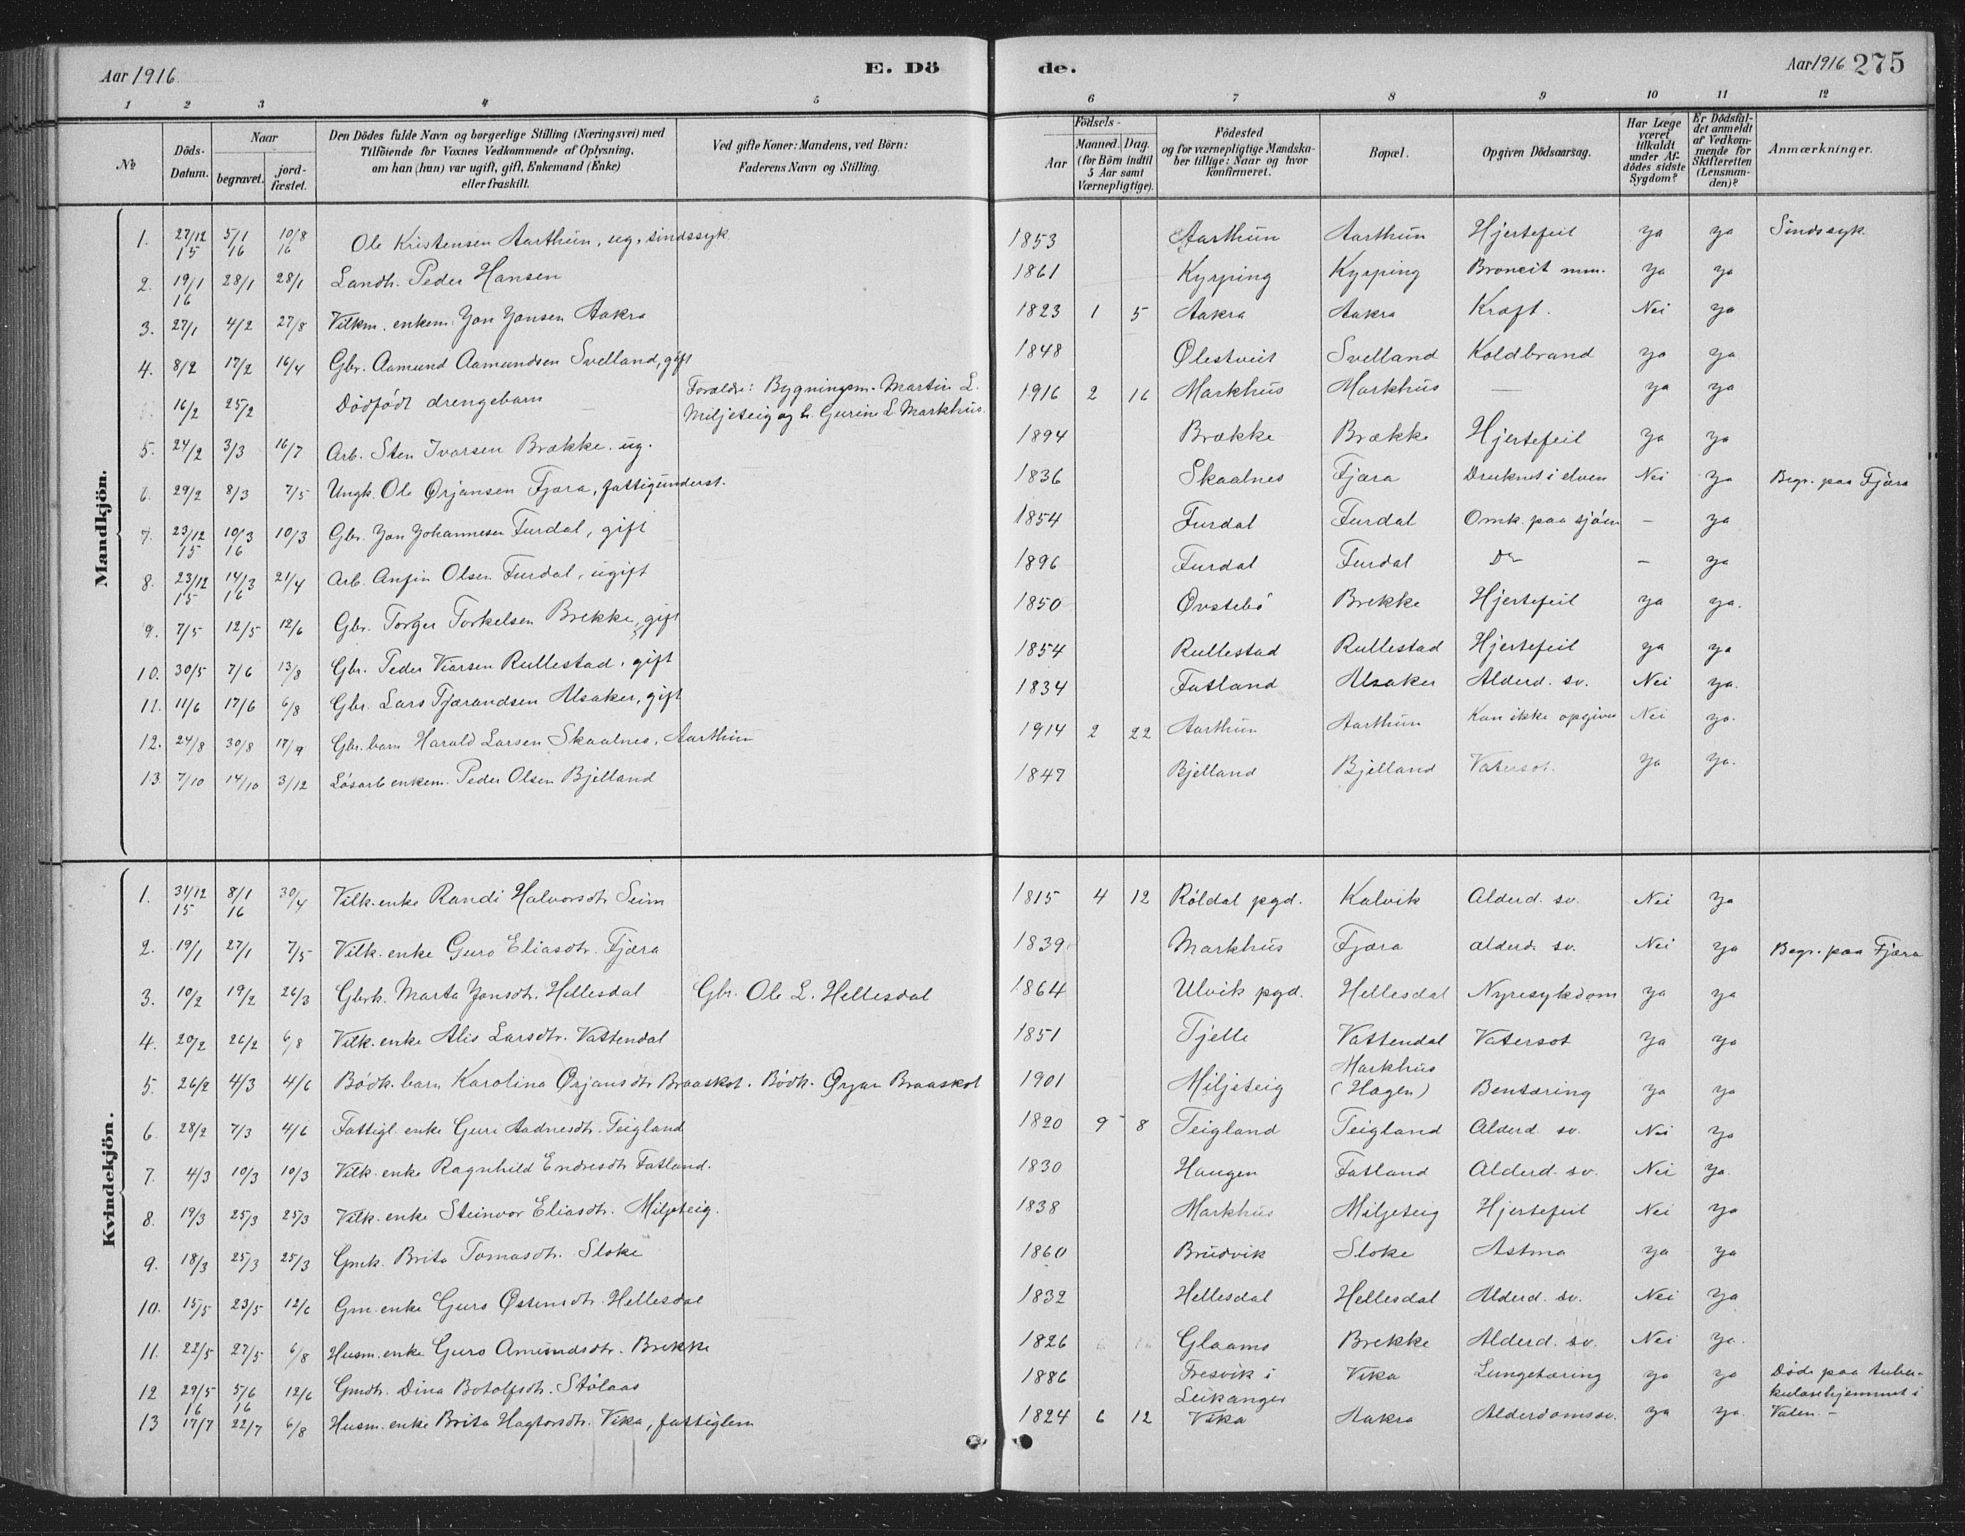 Aar 1916 E. Dö de. Aar 1916 275
1 2 3 4 5 6 7 8 9 10 11 12
No
Döds-Datum.
Naar
begravet.
jord-fæstet.
Den Dödes fulde Navn og borgerlige Stilling (Næringsvei) med
Tilföiende for Voxnes Vedkommende af Oplysning,
om han (hun) var ugift, gift, Enkemand (Enke)
eller fraskilt.
Ved gifte Koner: Mandens, ved Börn:
Faderens Navn og Stilling.
Födsels-
Aar
Maaned. Dag.
(for Börn indtil
5 Aar samt
Værnepligtige).
Födested
og for værnepligtige Mandska-
ber tillige: Naar og hvor
konfirmeret.
Bopæl.
Opgiven Dödsaarsag.
Har Læge
været
tilkaldt
under Af-
dödes sidste
Sygdom?
Er Dödsfal-
det anmeldt
af Vedkom-
mende for
Skifteretten
(Lensman-
den)?
Anmærkninger.
Mandkjön.
1. 27/12 15 5/1 16 10/8 16 Ole Kristensen Aarthun, ug, sindssyk 1853 Aarthun Aarthun Hjertefeil ya ya Sindssyk
2. 19/1 16 28/1 28/1 Landh. Peder Hansen 1861 Kyrping Kyrping Broncit mm. ya ya
3. 27/1 4/2 27/8 Vilkm. enkem. Jon Jonsen Aakra 1823 1 5 Aakra Aakra Kræft. Nei ya
4. 8/2 17/2 16/4 Gbr. Aamund Aamundsen Svelland, gift 1848 Ølestveit Svelland Koldbrand ya ya
16/2 25/2 Dödfödt drengebarn — Forældre: Bygningsm. Martin L. Miljeteig og h. Gurine L. Markhus. 1916 2 16 Markhus Markhus — ya ya
5. 24/2 3/3 16/7 Arb. Sten Ivarsen Brække. ug. 1894 Brække Brække Hjertefeil ya ya
6. 29/2 8/3 7/5 Ungk. Ole Ørjansen Fjæra, fattigunderst. 1836 Skaalnes Fjæra Druknet i elven Nei ya Begr. paa Fjæra
7. 23/12 15 10/3 16 10/3 Gbr. Jon Johannesen Furdal, gift 1854 Furdal Furdal Omk. paa sjøen — ya
8. 23/12 15 14/3 16 21/4 Arb. Anfin Olsen Furdal, ugift 1896 Furdal Furdal Do — ya
9. 7/5 12/5 12/6 Gbr. Torger Torkelsen Brekke, gift 1850 Øvstebö Brekke Hjertefeil ya ya.
10. 30/5 7/6 13/8 Gbr. Peder Ivarsen Rullestad, gift 1854 Rullestad Rullestad Hjertefeil ya ya
11. 11/6 17/6 6/8 Gbr. Lars Tjerandsen Alsaker, gift 1834 Fatland Alsaker Alderd. sv. Nei ya.
12. 24/8 30/8 17/9 Gbr. barn Harald Larsen Skaalnes, Aarthun 1914 2 22 Aarthun Aarthun Kan ikke opgives Nei ya.
13 7/10 14/10 3/12 Løsarb enkem. Peder Olsen Bjelland 1847 Bjelland Bjelland Vatersot. ya ya.
Kvindekjön.
1. 31/12 15 8/1 16 30/4 Vilk. enke Randi Halvorsdtr Seim 1815 4 12 Röldal pgd. Kalvik Alderd. sv. Nei ya
2. 19/1 27/1 7/5 Vilk. enke Guro Eliasdtr. Fjæra 1839 Markhus Fjæra alderd. sv. Nei ya Begr. paa Fjæra
3. 10/2 19/2 26/3 Gbrk. Marta Jonsdtr. Hellesdal Gbr. Ole L. Hellesdal 1864 Ulvik pgd. Hellesdal Nyresykdom ya ya
4. 20/2 26/2 6/8 Vilk. enke Alis Larsdtr. Vattendal 1851 Tjelle Vattendal Vatersot ya ya
5. 26/2 4/3 4/6 Bödk. barn Karolina Ørjansdtr Braaskot. Bödk. Ørjan Braaskot 1901 Miljeteig Markhus (Hagen) Bentæring ya ya
6. 28/2 7/3 4/6 Fattigl. enke Guri Aadnesdtr. Teigland 1820 9 8 Teigland Teigland Alderd. sv. Nei ya
7. 4/3 10/3 10/3 Vilk. enke Ragnhild Endresdtr Fatland. 1830 Haugen Fatland Alderd. sv. Nei ya.
8. 19/3 25/3 25/3 Vilk. enke Steinvor Eliasdtr. Miljeteig. 1838 Markhus Miljeteig Hjertefeil Nei ya
9. 18/3 25/3 25/3 Gmk. Brita Tomasdtr. Sloke 1860 Brudvik Sloke Astma ya ya
10. 15/5 23/5 12/6 Gm. enke Guro Østensdtr. Hellesdal 1832 Hellesdal Hellesdal Alderd. sv. Nei ya
11. 22/5 27/5 6/8 Husm. enke Guro Amundsdtr. Brekke 1826 Glaams Brekke Alderd. sv. Nei ya.
12 29/5 16 5/6 16 12/6 Gmdtr. Dina Botolfsdtr. Stølaas 1886 Fresvik i Leikanger Vika Lungetæring ya ya Døde paa tuber-kulosehjemmet i Valen. —
13 17/7 22/7 6/8 Husm. enke Brita Hagtorsdtr. Vika, fattiglem 1824 6 12 Vika Aakra Alderdomssv. ya ya.